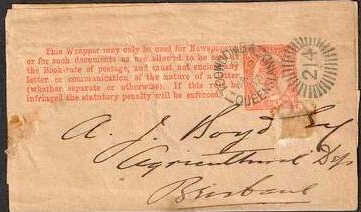 This Wrapper may only be used for Newspapers
or for such documents as are allowed to be sent at
the Book-rate of postage, and must not enclose any
letter or communication of the nature of a letter
(whether separate or otherwise). If this rule be
infringed, the statutory penalty will be enforced.
QUEENSLAND
214
A. J. Boyd Esq
Agricultural Dep
Brisbane